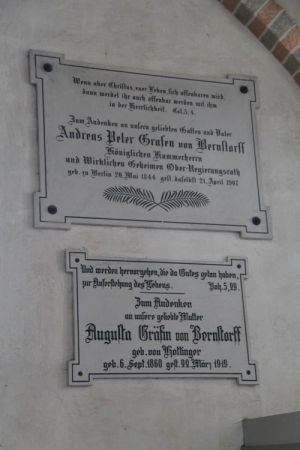 Wenn aber Christus, euer Leben, sich offenbaren wird,
dann werdet ihr auch offenbar werden mit ihm
in der Herrlichkeit. Col. 3, 4.
Zum Andenken an unsern geliebten Gatten und Vater
Andreas Peter Grafen von Bernstorff
Königlichen Kammerherrn
und Wirklichen Geheimen Ober-Regierungsrath
geb. zu Berlin 20. Mai 1844 gest. daselbst 21. April 1907
Und werden hervorgehen, die da Gutes getan haben,
zur Auferstehung des Lebens. Joh. 5, 29.
Zum Andenken
an unsere geliebte Mutter
Augusta Gräfin von Bernstorff
geb. von Hottinger
geb. 6. Sept. 1860 gest. 22. März 1919.